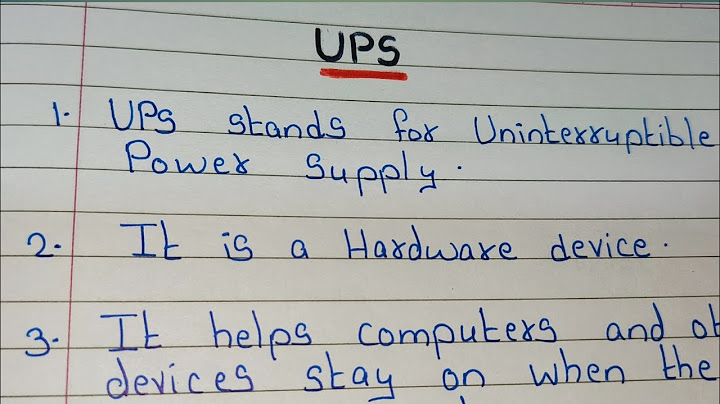 UPS
1. UPS stands for Uninterruptible
Power Supply.
2. It is a Hardware device.
3. It helps computers and
devices stay on when the